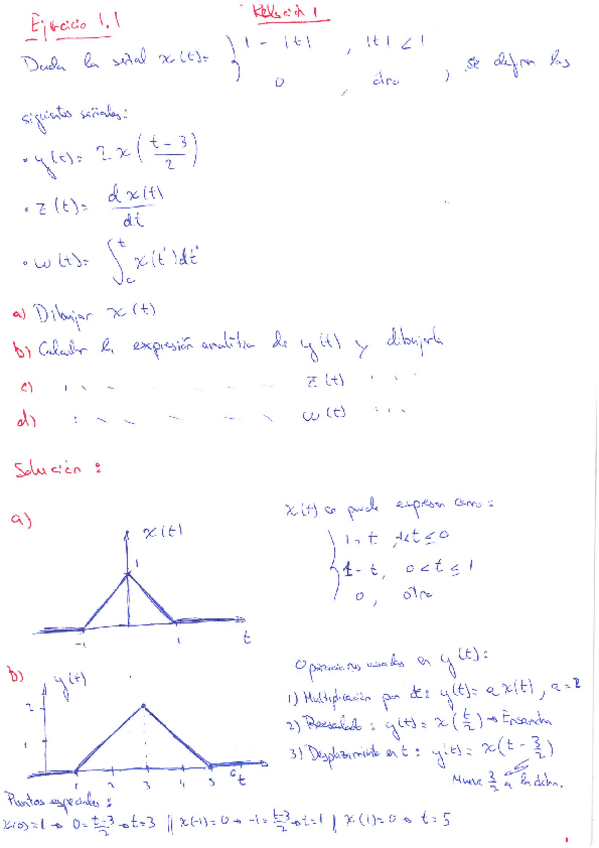 Ejercicio 1.1
Relación 1
Dada la señal x(t)= { 1 - |t| , |t| < 1
0 , otro , se definen las
siguientes señales:
• y(t)= 2 x ( t-3 / 2 )
• z(t)= dx(t) / dt
• w(t)= ∫ t x(t')dt'
a) Dibujar x(t)
b) Calcular la expresión analítica de y(t) y dibujarla
c) z(t)
d) w(t)
Solución :
a)
x(t)
1
-1 1 t
x(t) se puede expresar como :
1 + t , t ≤ 0
1 - t , 0 < t ≤ 1
0 , otro
b) y(t)
2
1
1 2 3 4 5 6 t
Operaciones usadas en y(t) :
1) Multiplicación por cte : y(t) = a x(t) , a = 2
2) Reescalado : y(t) = x ( t/2 ) → Ensancha
3) Desplazamiento en t : y(t) = x ( t - 3/2 )
Mueve 3/2 a la dcha.
Puntos especiales :
x(0)=1 → 0= t-3/2 → t=3 || x(-1)=0 → -1= t-3/2 → t=1 || x(1)=0 → t=5